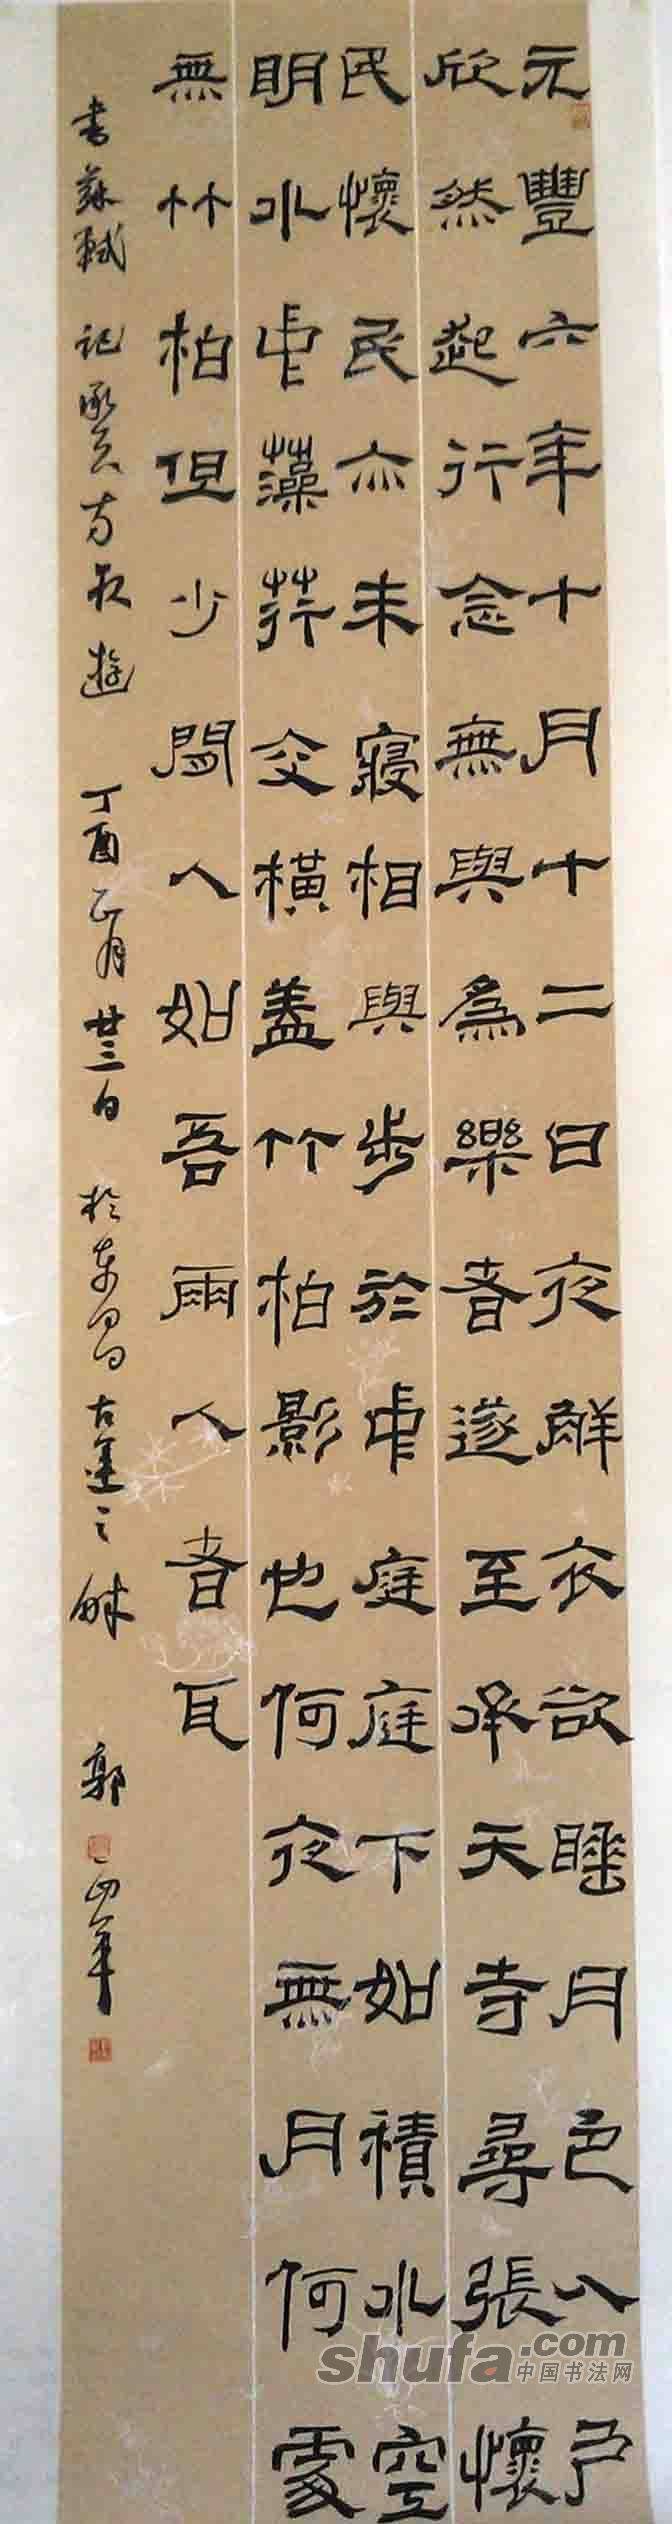 元豐六年十月十二日夜解衣欲睡月色入户
欣然起行念無與為樂者遂至承天寺尋張懷
民懷民亦未寢相與步於中庭庭下如積水空
明水中藻荇交橫蓋竹柏影也何夜無月何處
無竹柏但少閒人如吾兩人者耳
書蘇軾記承天寺夜遊 丁酉正月廿三日 於東昌古運之畔 郭
shufa.com
中国书法网